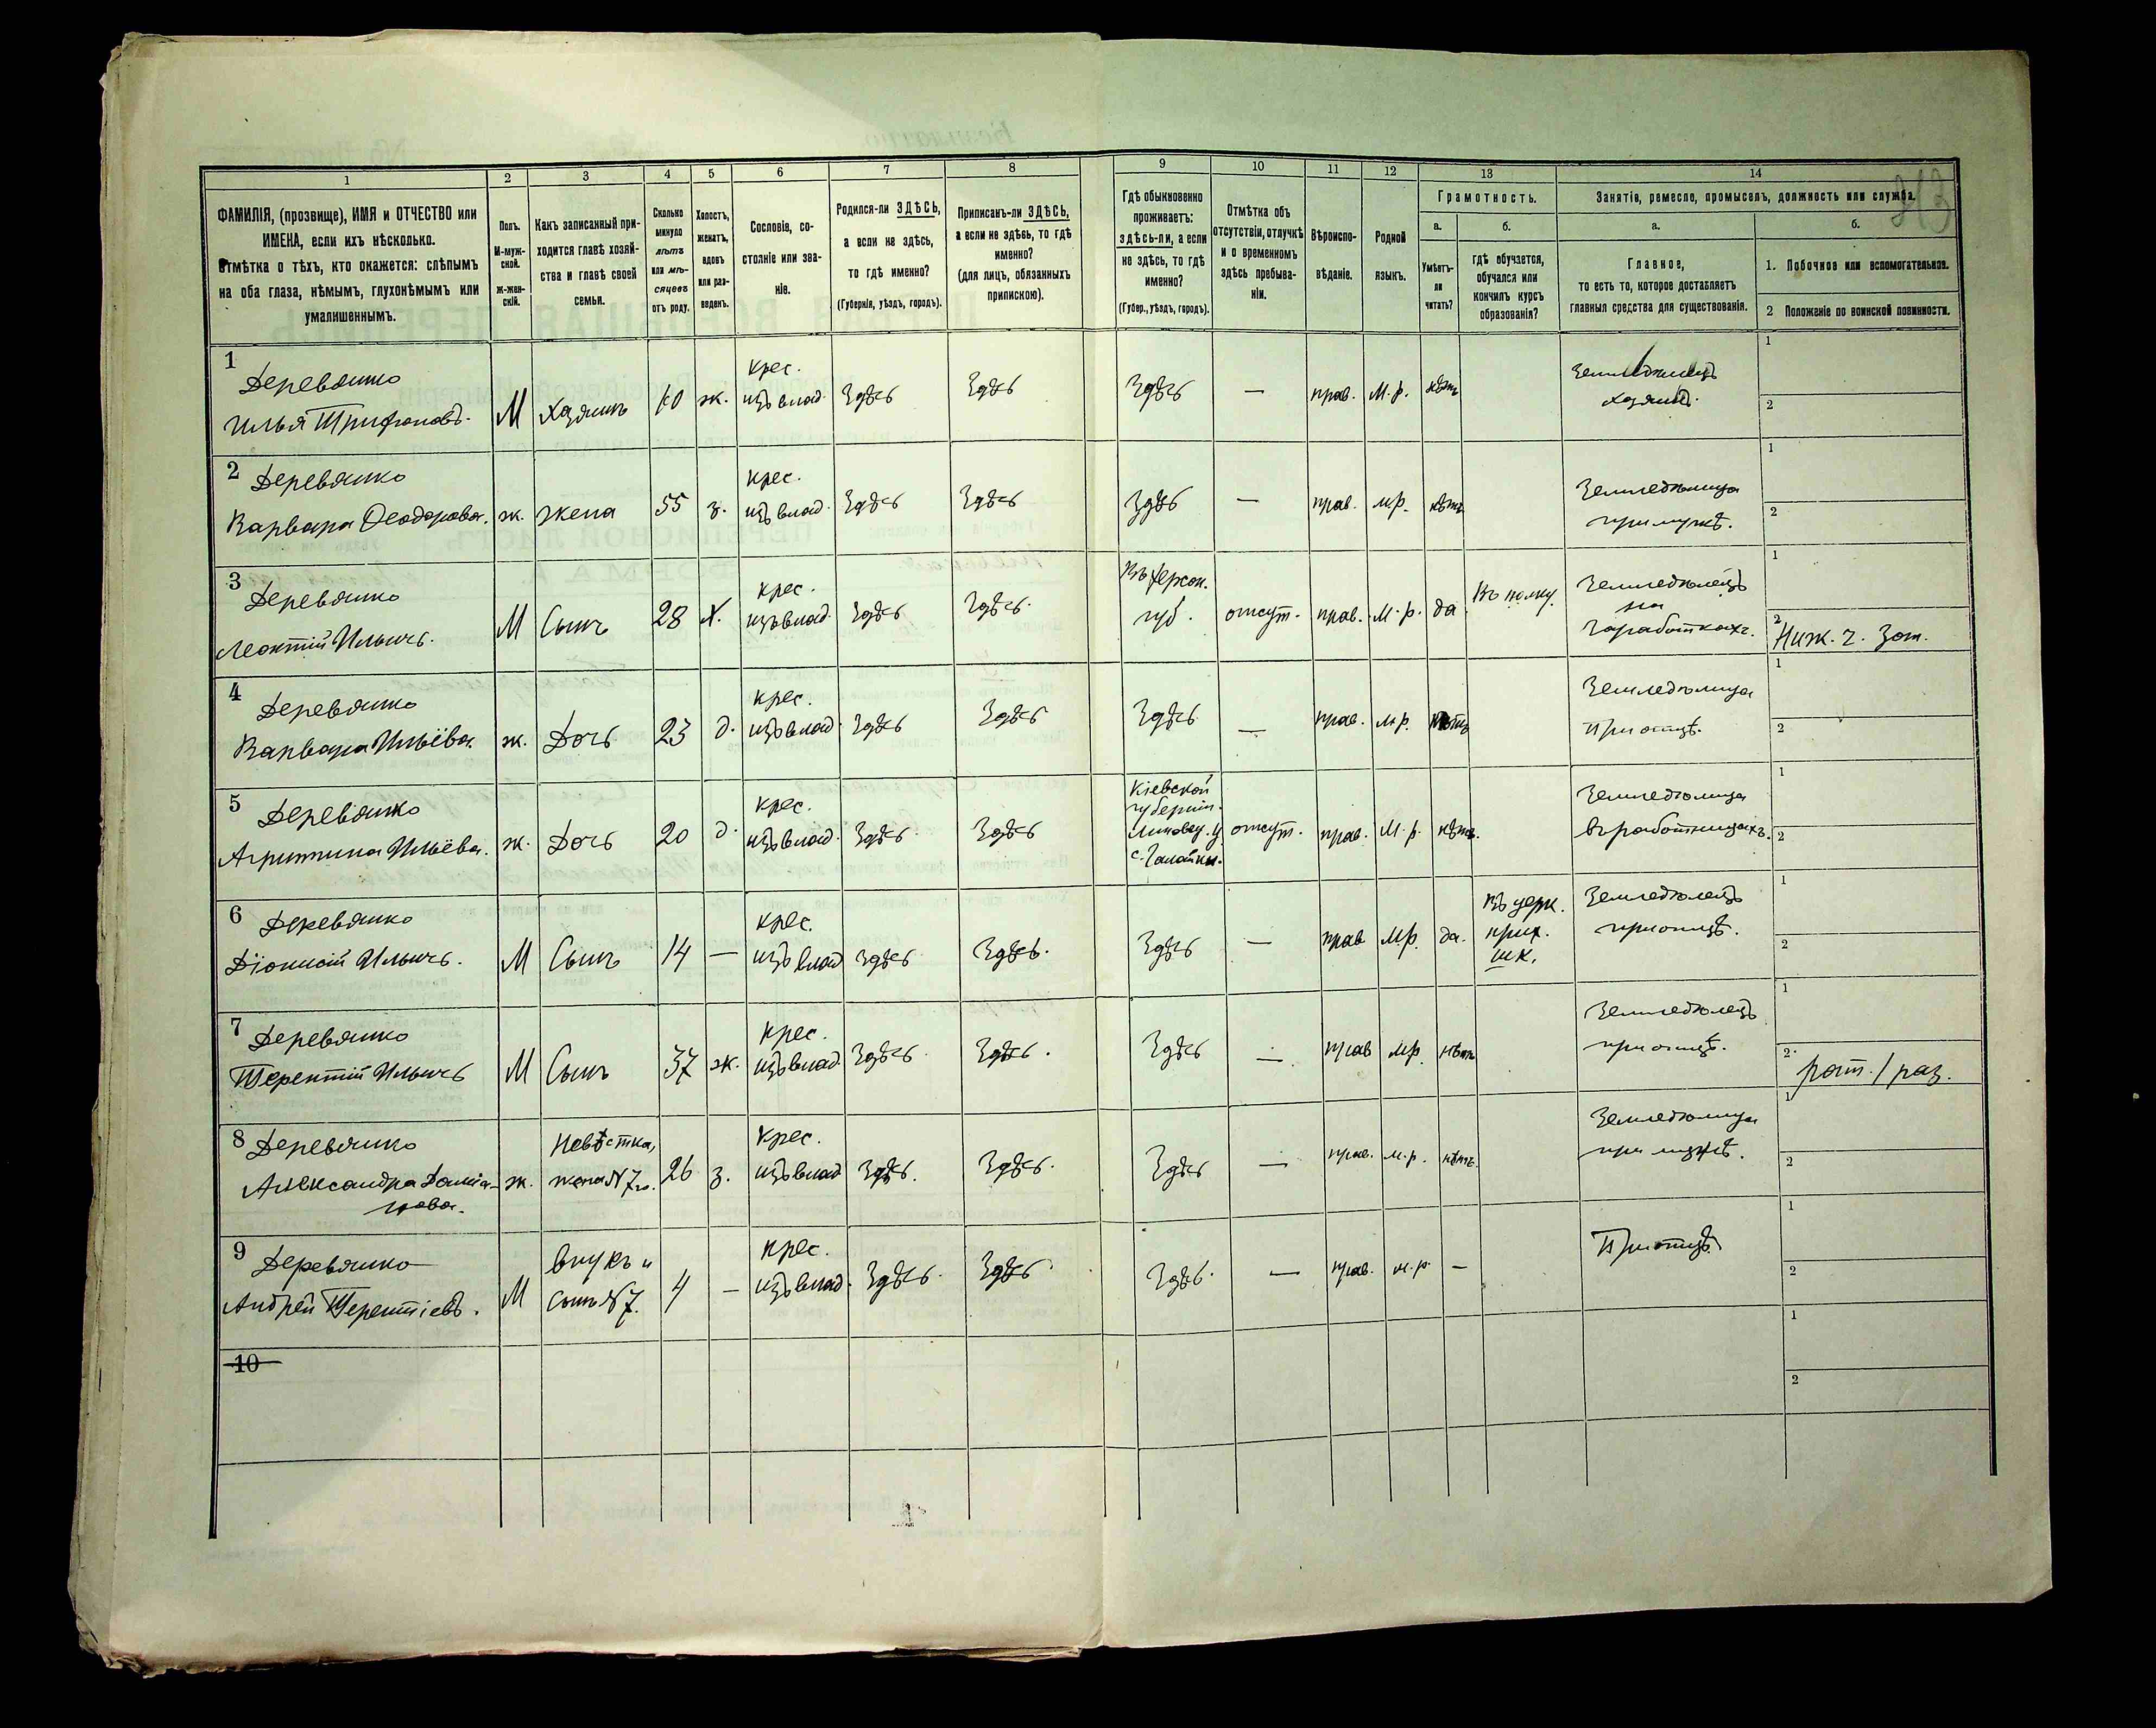 1 2 3 4 5 6 7 8 9 10 11 12 13 14
ФАМИЛІЯ, (прозвище), ИМЯ и ОТЧЕСТВО или
ИМЕНА, если ихъ нѣсколько.
Отмѣтка о тѣхъ, кто окажется: слѣпымъ
на оба глаза, нѣмымъ, глухонѣмымъ или
умалишеннымъ.
Полъ.
М-муж-
ской.
ж-жен-
скій.
Какъ записанный при-
ходится главѣ хозяй-
ства и главѣ своей
семьи.
Сколько
минуло
лѣтъ
или мѣ-
сяцевъ
отъ роду.
Холостъ,
женатъ,
вдовъ
или раз-
веденъ.
Сословіе, со-
стояніе или зва-
ніе.
Родился-ли ЗДѢСЬ,
а если не здѣсь,
то гдѣ именно?
(Губернія, уѣздъ, городъ).
Приписанъ-ли ЗДѢСЬ,
а если не здѣсь, то гдѣ
именно?
(для лицъ, обязанныхъ
припискою).
Гдѣ обыкновенно
проживаетъ:
здѣсь-ли, а если
не здѣсь, то гдѣ
именно?
(Губер., уѣздъ, городъ).
Отмѣтка объ
отсутствіи, отлучкѣ
и о временномъ
здѣсь пребыва-
ніи.
Вѣроиспо-
вѣданіе.
Родной
языкъ.
Грамотность.
а.
Умѣетъ-
ли
читать?
б.
гдѣ обучается,
обучался или
кончилъ курсъ
образованія?
Занятіе, ремесло, промыселъ, должность или служба.
а.
Главное,
то есть то, которое доставляетъ
главныя средства для существованія.
б.
1. Побочное или вспомогательное.
2 Положеніе по воинской повинности.
1 Деревянко
Илья Трифоновъ.
М
Хозяинъ
ж.
крес.
изъ влад.
Здѣсь
Здѣсь
Здѣсь
—
прав.
М.р.
нѣтъ
Земледѣлецъ
хозяинъ.
1
2
2 Деревянко
Варвара Ѳеодорова.
ж.
жена
55
з.
крес.
изъ влад.
Здѣсь
Здѣсь
Здѣсь
—
прав.
м.р.
нѣтъ
Земледѣлица
при мужѣ.
1
2
3 Деревянко
Леонтій Ильичъ.
М
Сынъ
28
х.
крес.
изъ влад.
Здѣсь
Здѣсь.
Въ Херсон.
губ.
отсут.
прав.
М.р.
да
Въ полку.
Земледѣлецъ
на
заработкахъ.
1
2
Ниж. ч. Зап.
4 Деревянко
Варвара Ильёва.
ж.
Дочь
23
д.
крес.
изъ влад.
Здѣсь
Здѣсь
Здѣсь
—
прав.
м.р.
нѣтъ
Земледѣлица
При отцѣ.
1
2
5 Деревянко
Агрипина Ильёва.
ж.
Дочь
20
д.
крес.
изъ влад.
Здѣсь.
Здѣсь
Кіевской
губерніи.
Липовец. у
отсут.
прав.
М.р.
нѣтъ.
Земледѣлица
въ работницахъ.
1
2
6 Деревянко
Діонисій Ильичъ.
М
Сынъ
14
—
крес.
изъ влад
Здѣсь
Здѣсь.
Здѣсь
—
прав
М.р.
да.
Въ церк.
прих.
шк.
Земледѣлецъ
при отцѣ.
1
2
7 Деревянко
Терентій Ильичъ
М
Сынъ
37
ж.
крес.
изъ влад.
Здѣсь.
Здѣсь.
Здѣсь
—
прав
м.р.
нѣтъ
Земледѣлецъ
при отцѣ.
1
2
рат. 1 раз.
8 Деревянко
Александра
ж.
Невѣстка,
жена №7го.
26
з.
крес.
изъ влад
Здѣсь.
Здѣсь.
Здѣсь
—
прав.
м.р.
нѣтъ.
Земледѣлица
при мужѣ.
1
2
9 Деревянко
Андрей Терентіевъ.
М
внукъ и
сынъ №7.
4
—
крес.
изъ влад.
Здѣсь.
Здѣсь
Здѣсь.
—
прав.
м.р.
—
При отцѣ
1
2
10
1
2